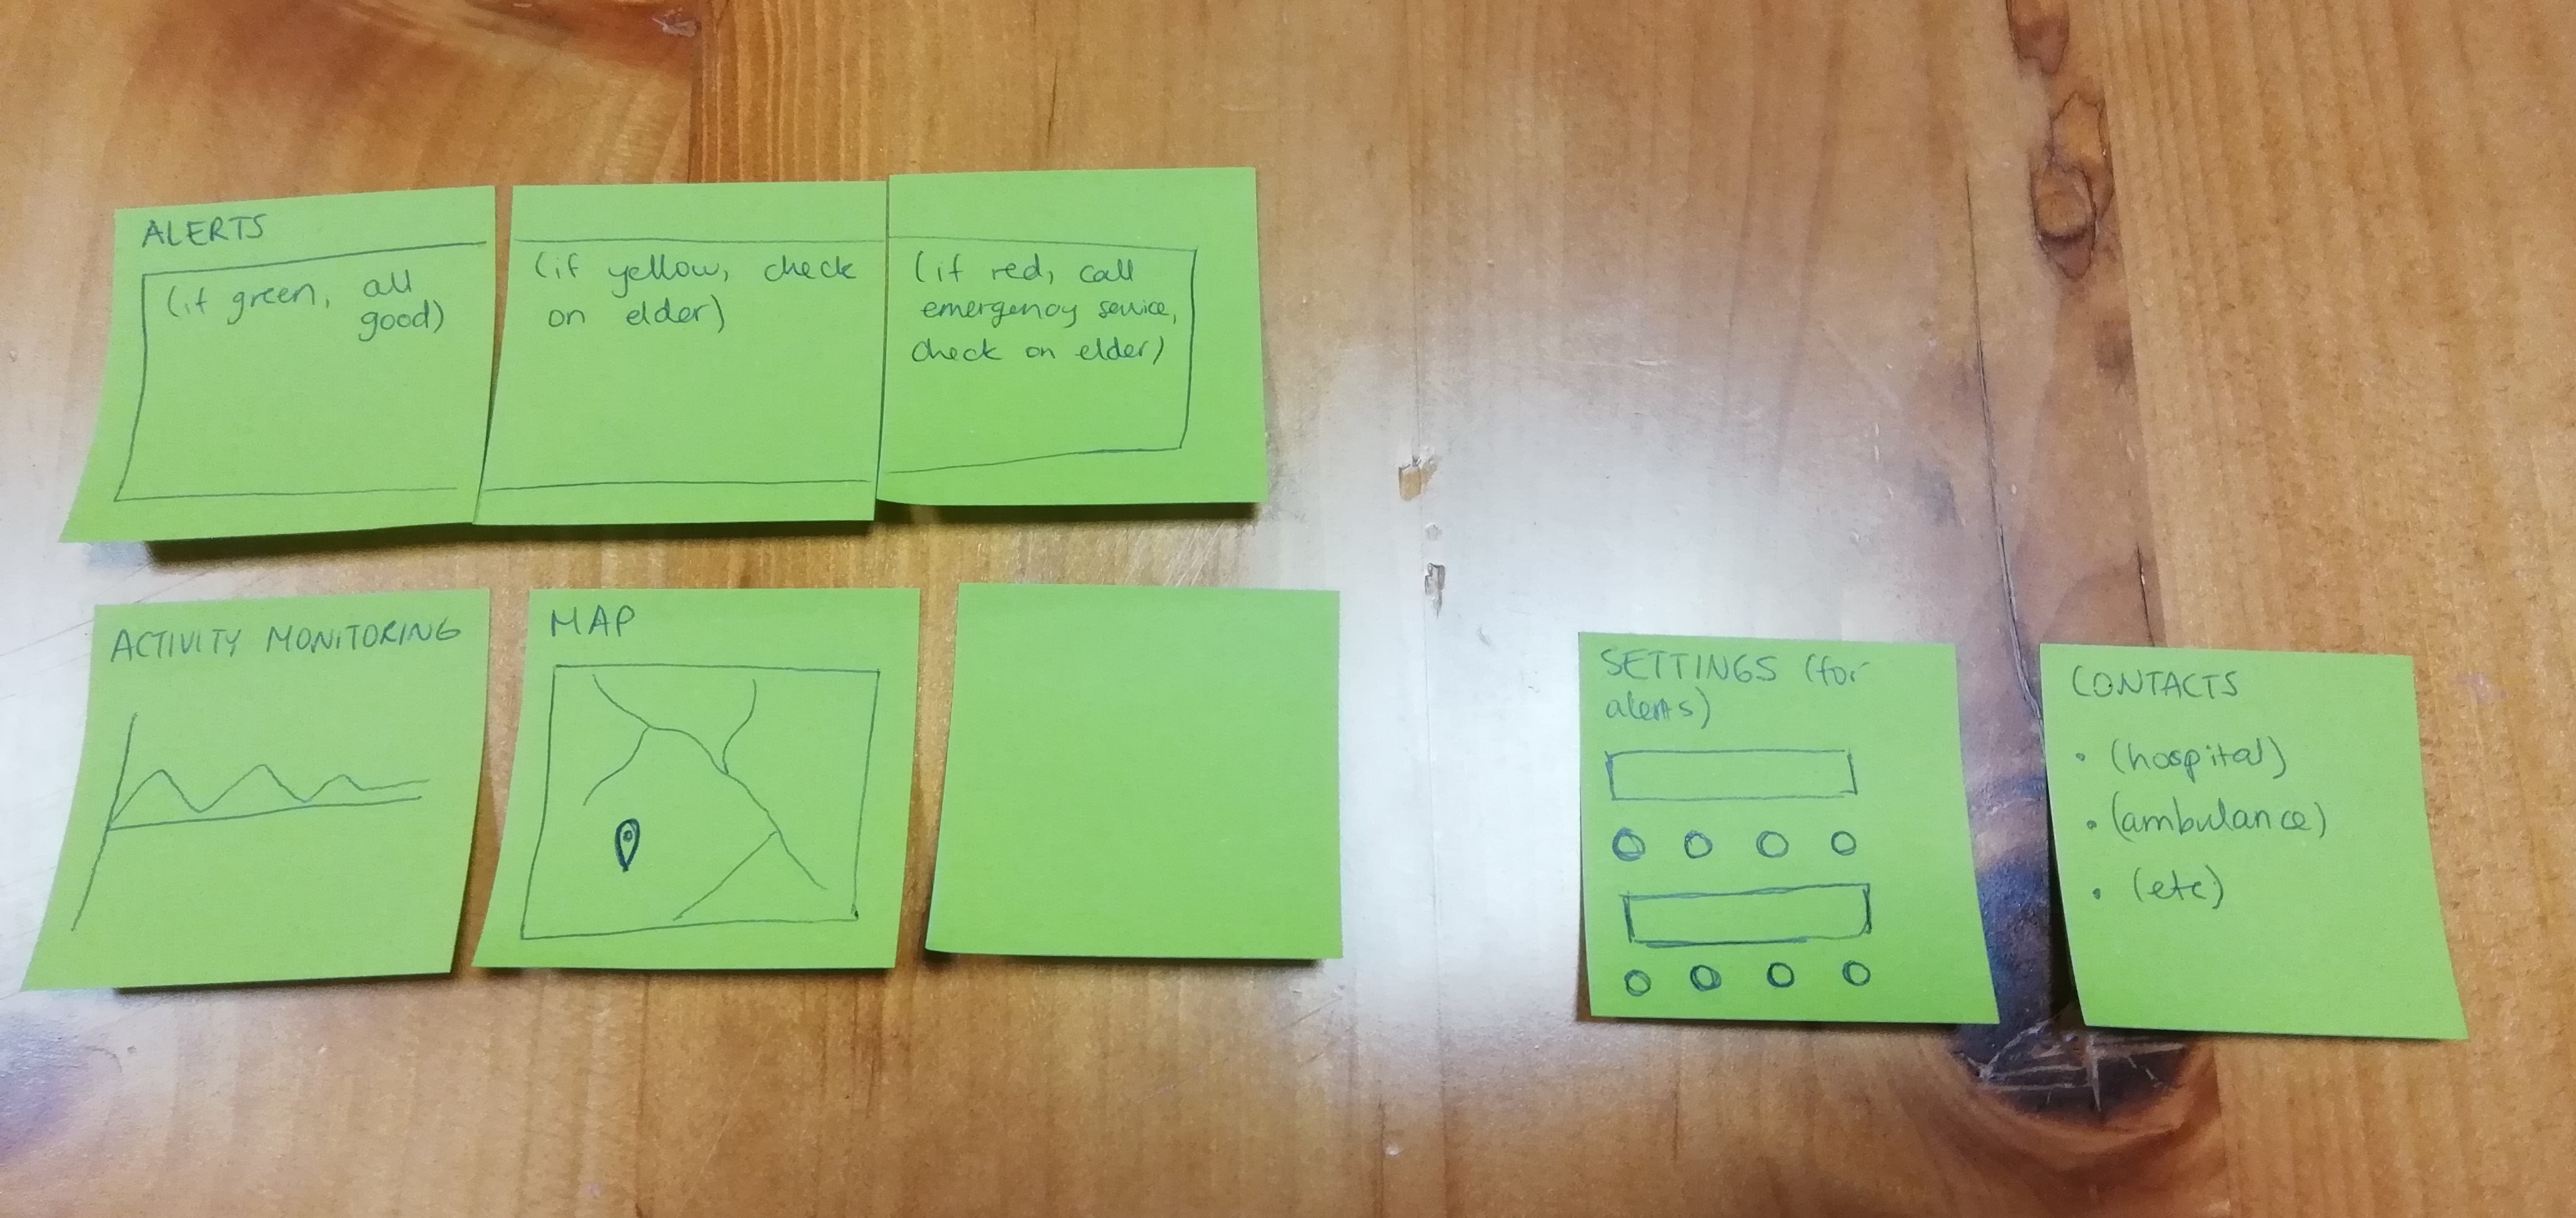 ALERTS
(if green, all
good)
(if yellow, check
on elder)
(if red, call
emergency service,
check on elder)
ACTIVITY MONITORING
MAP
SETTINGS (for
alerts)
CONTACTS
• (hospital)
• (ambulance)
• (etc)